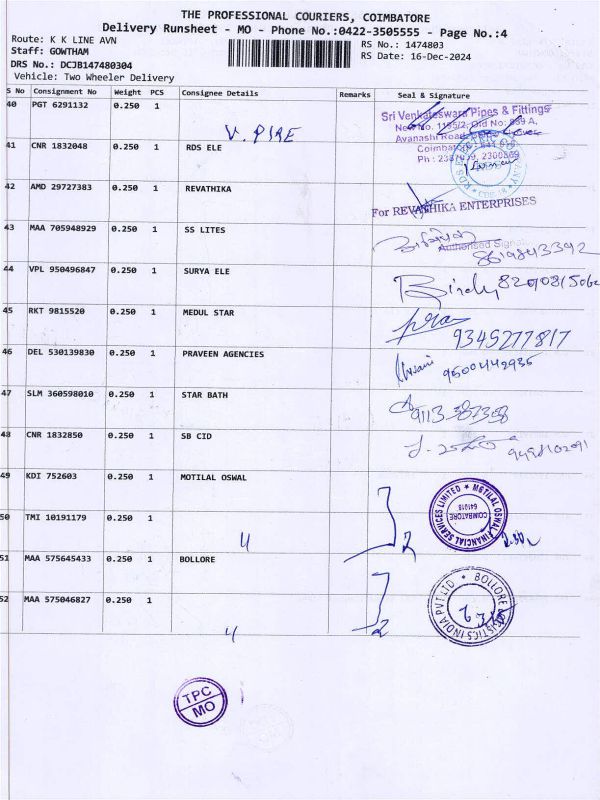 THE PROFESSIONAL COURIERS, COIMBATORE
Delivery Runsheet - MO - Phone No.:0422-3505555 - Page No.:4
Route: K K LINE AVN
RS No.: 1474803
Staff: GOWTHAM
RS Date: 16-Dec-2024
DRS No.: DCJB147480304
Vehicle: Two Wheeler Delivery
S No Consignment No Weight PCS Consignee Details Remarks Seal & Signature
40 PGT 6291132 0.250 1
V. PIRE
Sri Venkateswara Pipes & Fittings
Avanashi Road
41 CNR 1832048 0.250 1 RDS ELE
42 AMD 29727383 0.250 1 REVATHIKA
For REVATHIKA ENTERPRISES
43 MAA 705948929 0.250 1 SS LITES
Authorised
44 VPL 950496847 0.250 1 SURYA ELE
45 RKT 9815520 0.250 1 MEDUL STAR
9345277817
46 DEL 530139830 0.250 1 PRAVEEN AGENCIES
9500442935
47 SLM 360598010 0.250 1 STAR BATH
48 CNR 1832850 0.250 1 SB CID
49 KDI 752603 0.250 1 MOTILAL OSWAL
MOTILAL OSWAL FINANCIAL SERVICES LIMITED
COIMBATORE
641018
50 TMI 10191179 0.250 1
4
2
51 MAA 575645433 0.250 1 BOLLORE
BOLLORE LOGISTICS INDIA PVT LTD
52 MAA 575046827 0.250 1
4
2
TPC
MO